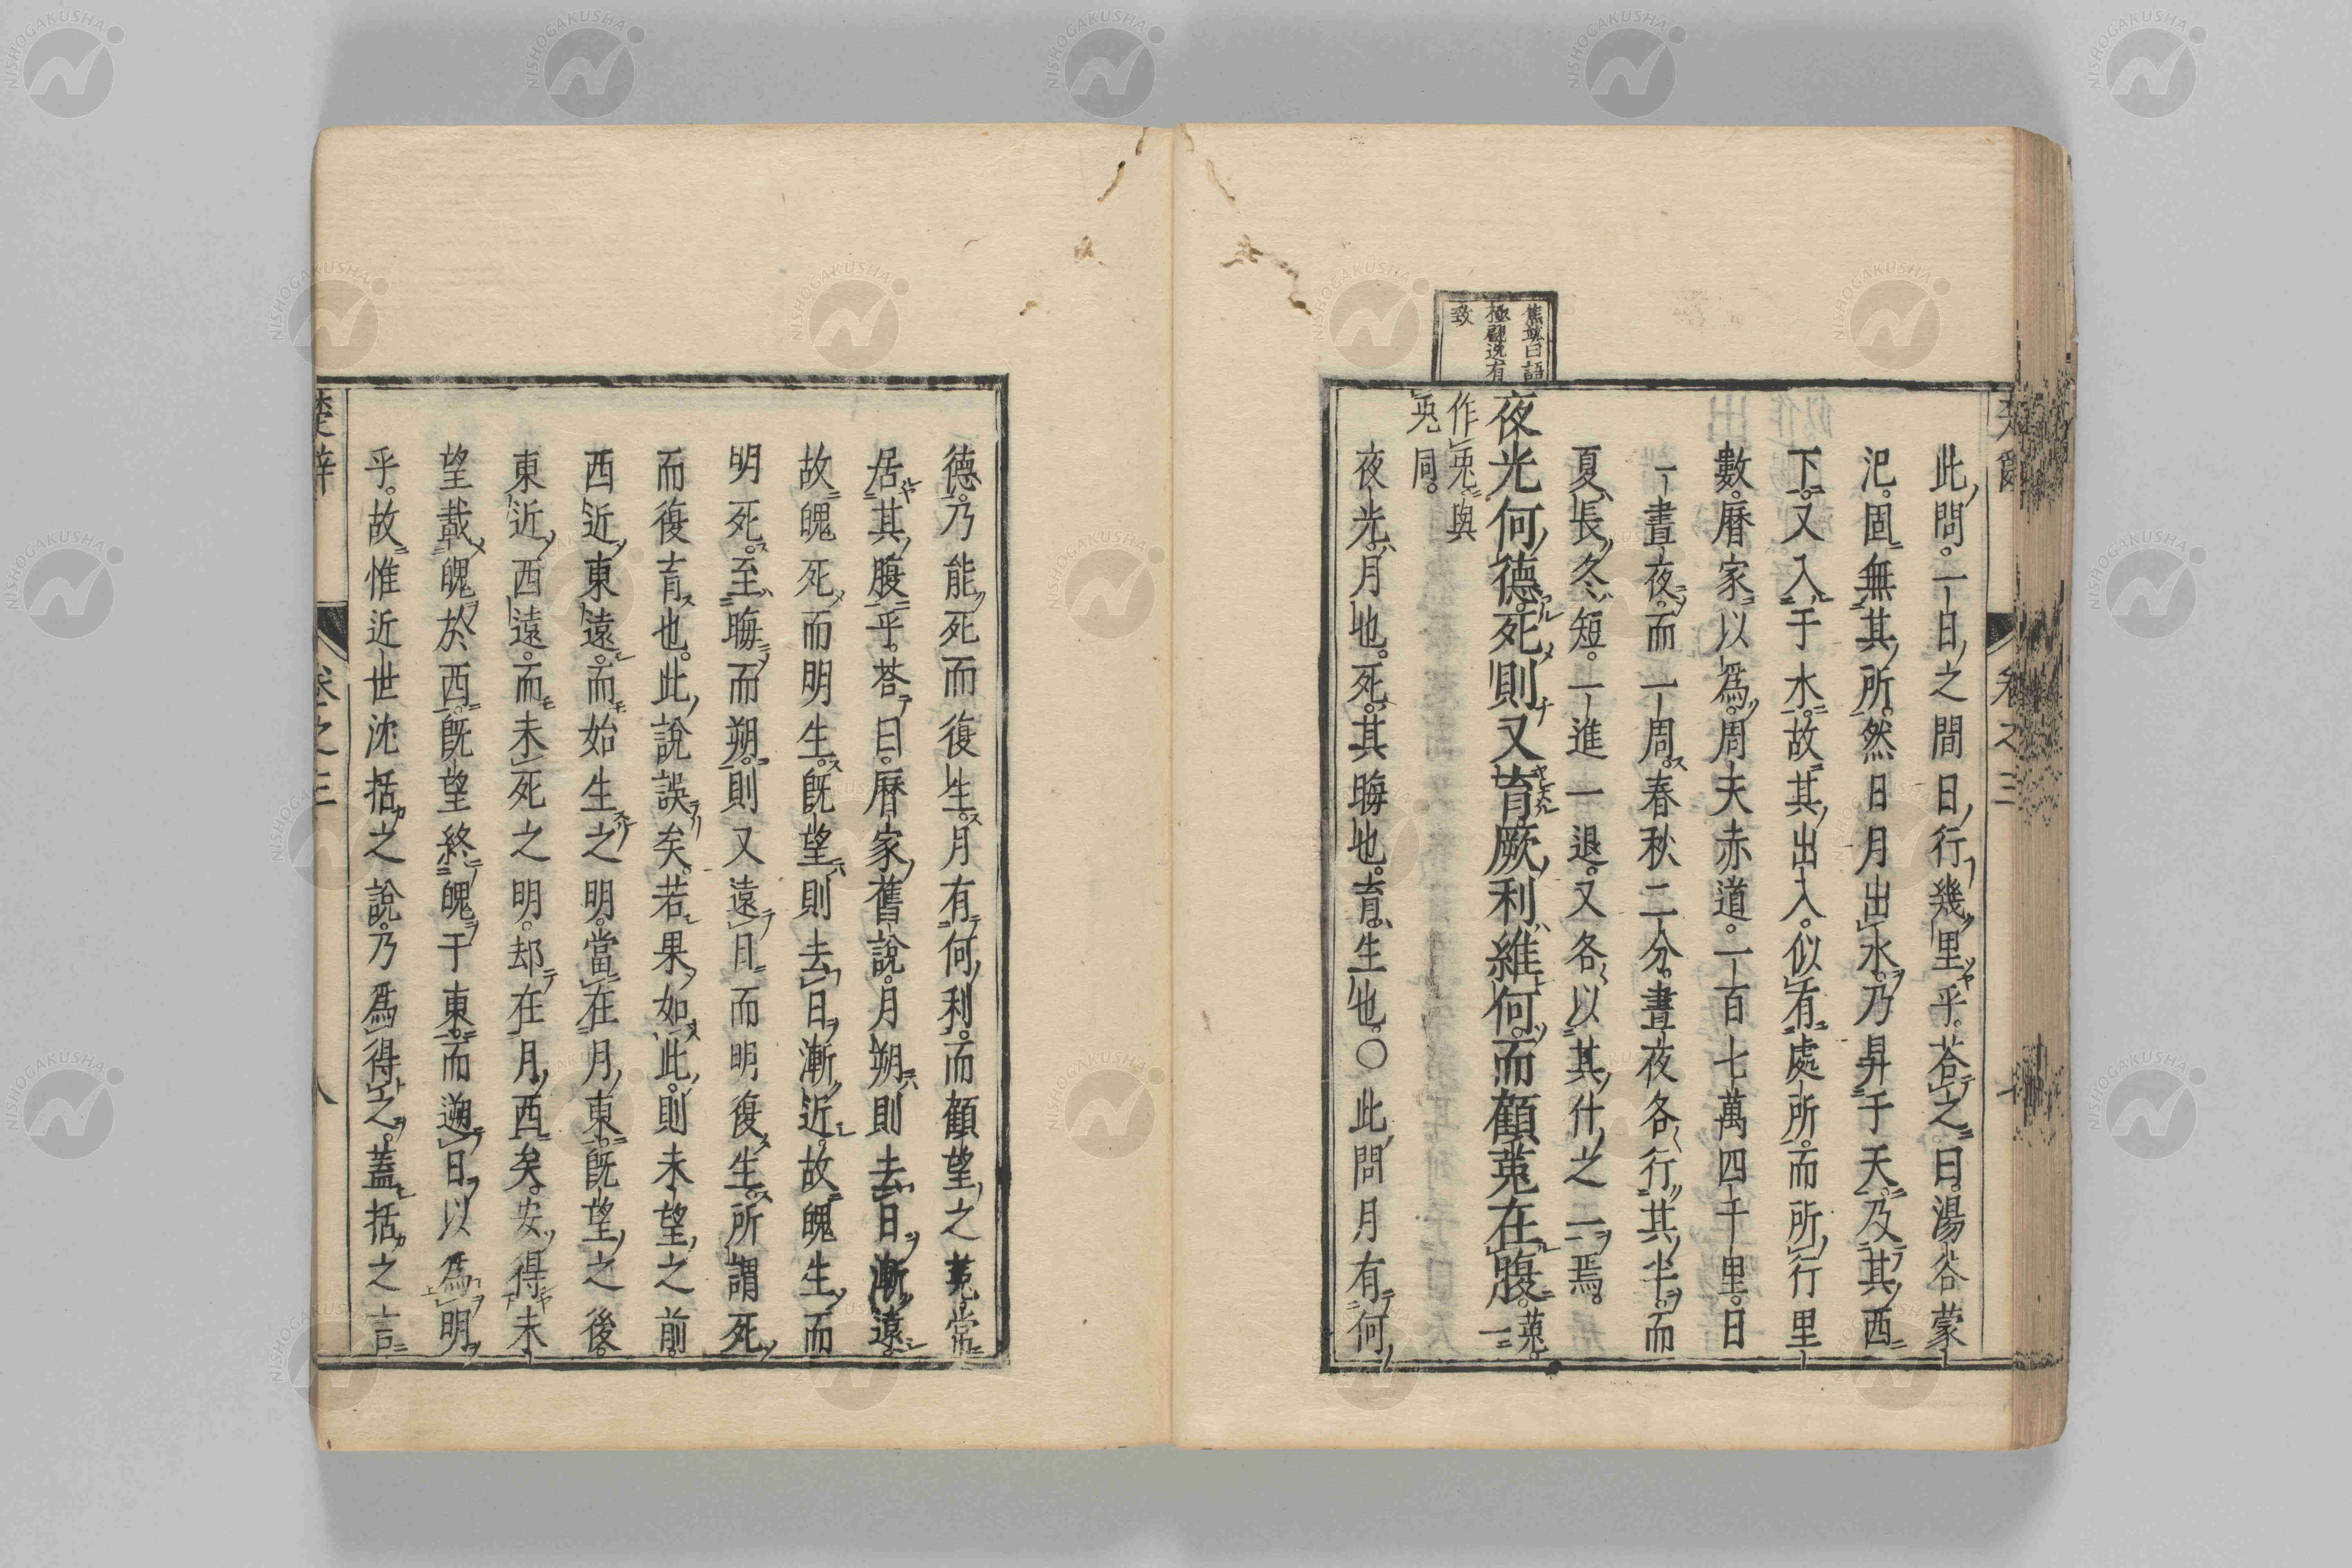 此問。一日之間日行幾里乎。荅之曰。湯谷蒙
汜。固無其所。然日月出水。乃昇于天。及其西
下。又入于水。故其出入。似有處所。而所行里
數。曆家以爲。周天赤道。一百七萬四千里。日
一晝夜而一周。春秋二分。晝夜各行其半。而
夏長冬短。一進一退。又各以其什之一焉。
焦竑曰語
極翻迭有
致
夜光何德。死則又育。厥利維何。而顧菟在腹。菟。一
作兎。與
兎同。
夜光。月也。死。其晦也。育。生也。〇此問月有何
德。乃能死而復生。月有何利。而顧望之菟常
居其腹乎。荅曰。曆家舊說。月朔則去日漸遠。
故魄死而明生。旣望則去日漸近。故魄生而
明死。至晦而朔。則又遠日而明復生。所謂死
而復育也。此說誤矣。若果如此。則未望之前。
西近東遠。而始生之明。當在月東。旣望之後。
東近西遠。而未死之明。却在月西矣。安得未
望載魄於西。旣望終魄于東。而遡日以爲明
乎。故惟近世沈括之說。乃爲得之。蓋括之言
楚辭 卷之三 八
卷之三
NISHOGAKUSHA